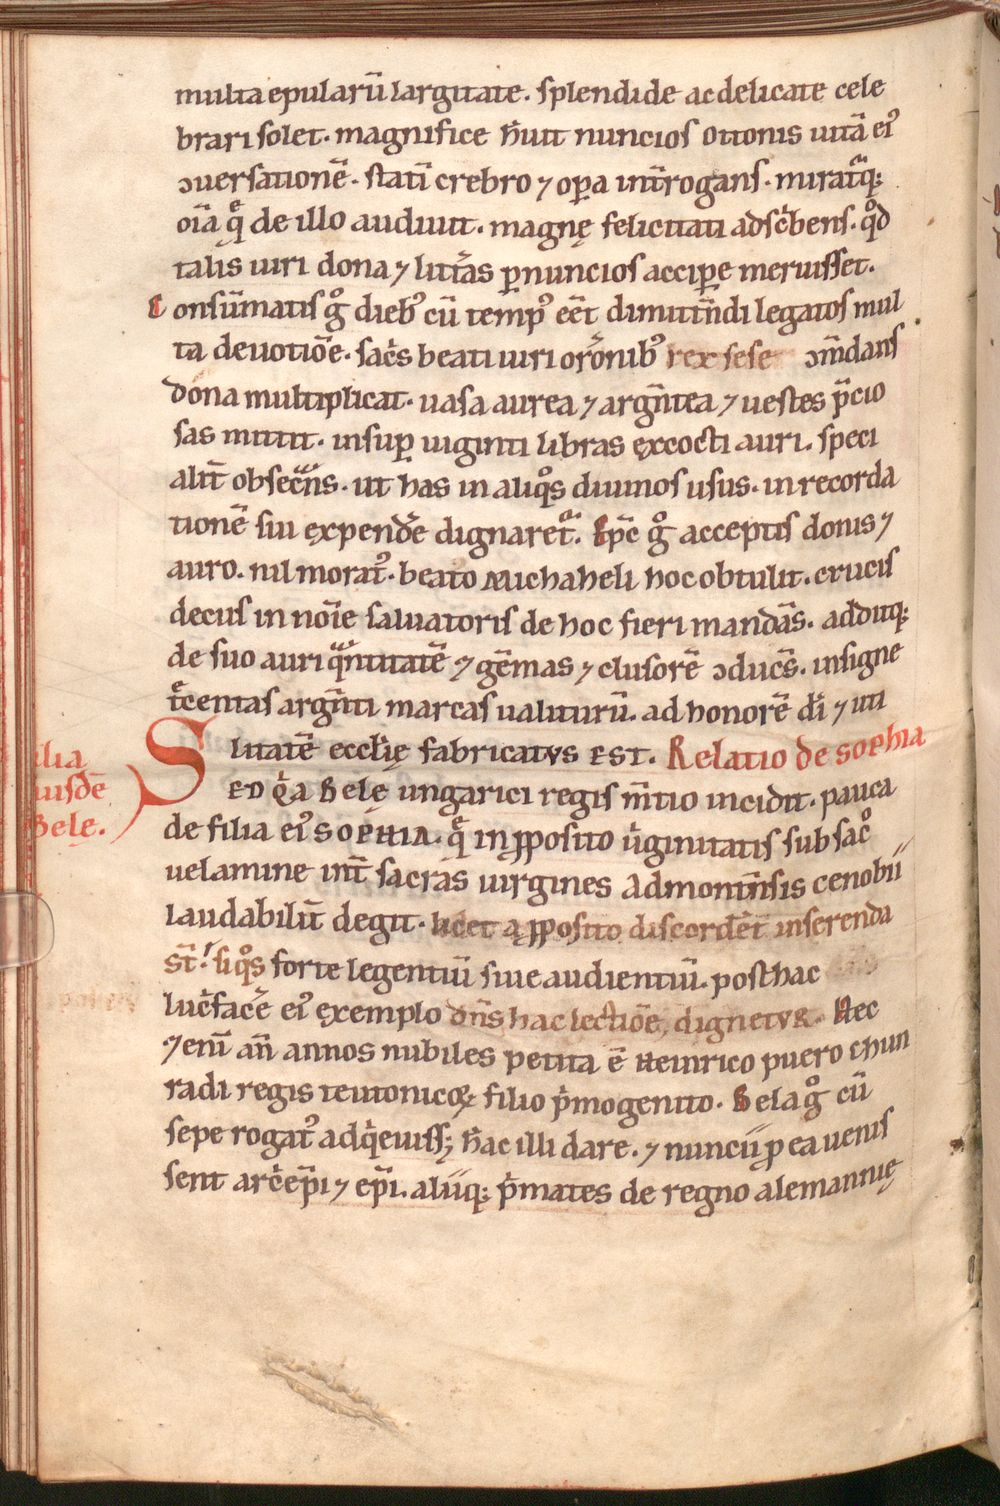 multa epularū largitate. splendide ac delicate cele
brari solet. magnifice h̄uit nuncios ottonis uitā eiꝰ
ↄuersationē. statū crebro ⁊ opa int̄rogans. miratᷓq;
oīa q̄ͤ de illo audiuit. magnę felicitati adsc̍bens. qͦd
talis uiri dona ⁊ litt̄as ꝑ nuncios acciꝑe meruisset.
Consūmatis gͦ diebꝰ cū tempꝰ eēt dimittn̄di legatos mul
ta deuotiōe. sac̍s beati uiri orōnibꝰ rex sese ↄm̄dans
dona multiplicat. uasa aurea ⁊ argn̄tea ⁊ uestes p̄cio
sas mittit. insuꝑ uiginti libras excocti auri. speci
alit̄ obsecᷓns. ut has in aliqͦs diuinos usus. in recorda
tionē sui expendē̍ dignaretᷣ. Ep̄c gͦ acceptis donis ⁊
auro. nil moratꝰ. beato Michaheli hoc obtulit. crucis
decus in noīe saluatoris de hoc fieri mandās. additq;
de suo auri qᷓntitatē ⁊ gēmas ⁊ clusorē ↄducēs. insigne
tͤcentas argn̄ti marcas ualiturū. ad honorē di̅ ⁊ uti
litatē eccl̄ię fabricatus est. Relatio de sophia
ilia
iusdē
Bele.
SED q̍a Belę ungarici regis m̄tio incidit. pauca
de filia eiꝰ SOPHIA. qͤ in ꝓposito u̍ginitatis sub sacͦ
uelamine int̄ sacras uirgines Admontn̄sis cenobii
laudabilit̄ degit. licet a ꝓposito discordēt inserenda
st̄. si qͦs forte legentiū siue audientiū. posthac
luc̍facē̍ eiꝰ exemplo dn̄s hac lectiōe, dignetur. Hec
⁊enī an̄ annos nubiles petita ē Heinrico puero chun
radi regis teutonicoꝝ filio p̍mogenito. Bela gͦ cū
sepe rogatꝰ adq̍euiss; h̄ac illi dare. ⁊ nuncii ꝓ ea uenis
sent arc̍ep̄i ⁊ ep̄i. aliiq; p̍mates de regno alemannię